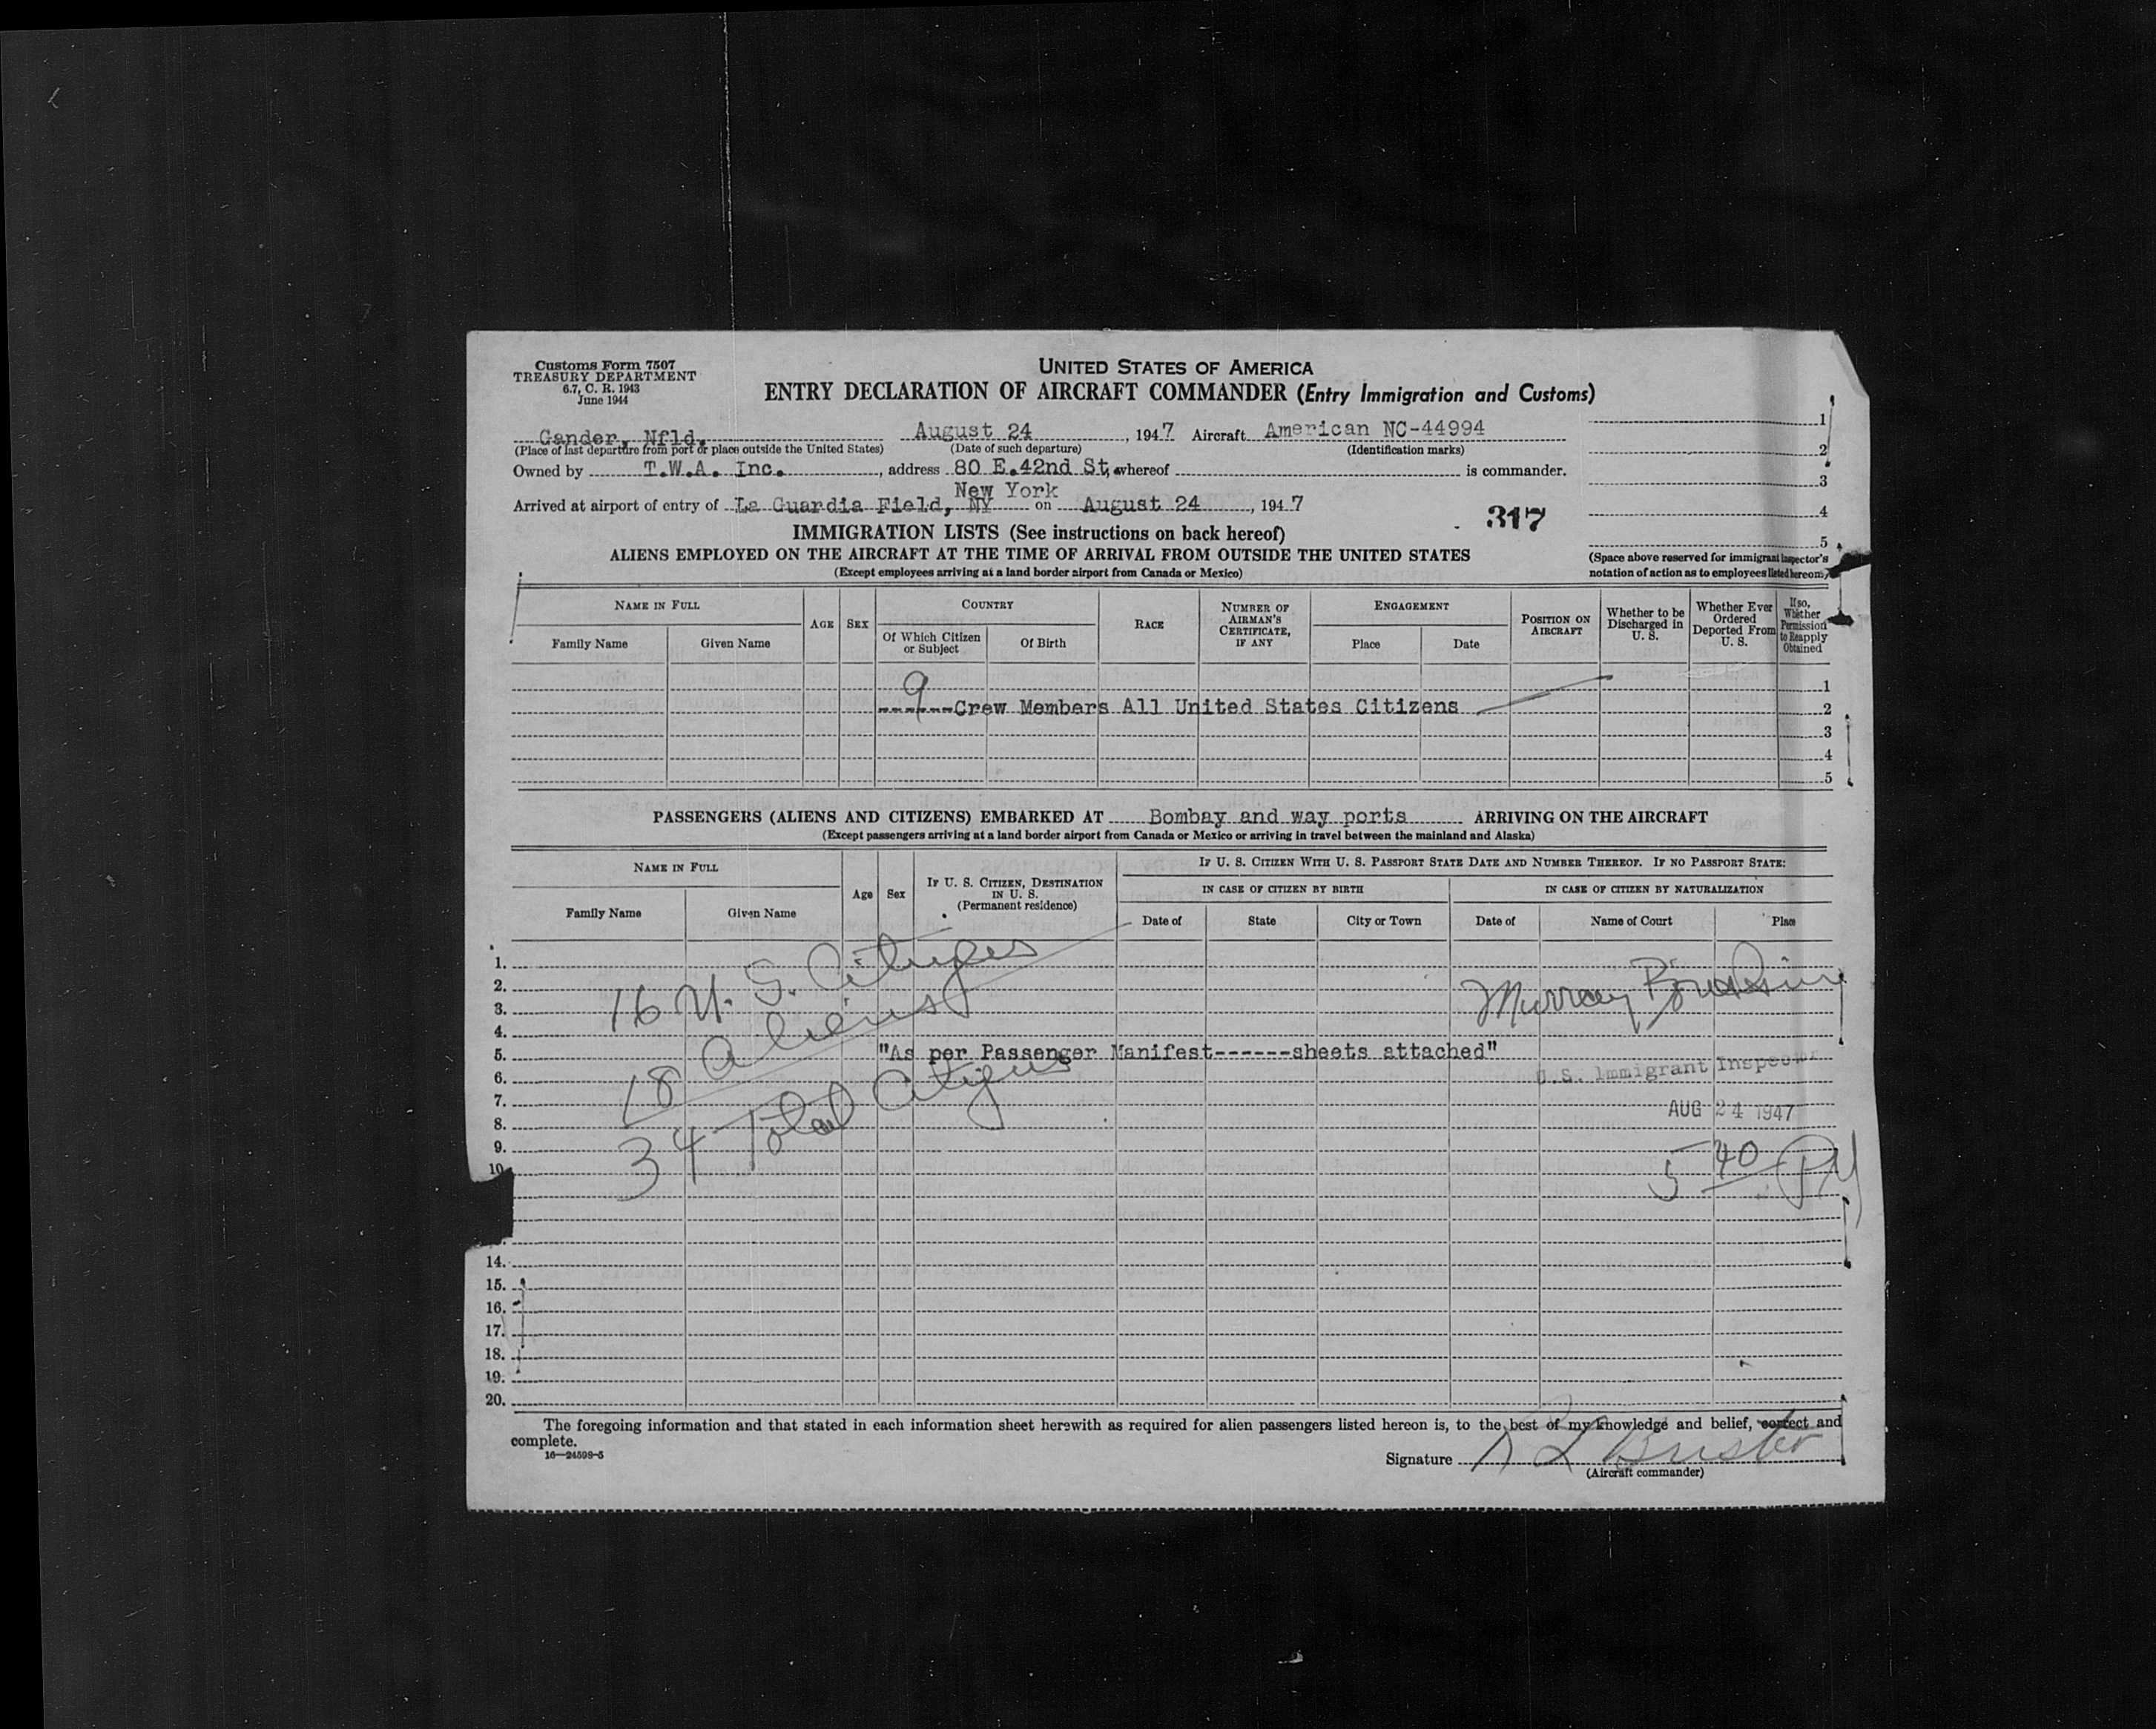 Customs Form 7507
TREASURY DEPARTMENT
6.7, C. R. 1943
June 1944
UNITED STATES OF AMERICA
ENTRY DECLARATION OF AIRCRAFT COMMANDER (Entry Immigration and Customs)
Gander, Nfld. August 24, 1947 Aircraft American NC-44994
(Place of last departure from port or place outside the United States) (Date of such departure) (Identification marks)
Owned by T.W.A. Inc., address 80 E.42nd St, whereof is commander.
New York
Arrived at airport of entry of La Guardia Field, NY on August 24, 1947
317
1
2
3
4
5
IMMIGRATION LISTS (See instructions on back hereof)
ALIENS EMPLOYED ON THE AIRCRAFT AT THE TIME OF ARRIVAL FROM OUTSIDE THE UNITED STATES
(Except employees arriving at a land border airport from Canada or Mexico)
(Space above reserved for immigrant inspector's
notation of action as to employees listed hereon)
NAME IN FULL
Family Name
Given Name
AGE
SEX
COUNTRY
Of Which Citizen
or Subject
Of Birth
RACE
NUMBER OF
AIRMAN'S
CERTIFICATE,
IF ANY
ENGAGEMENT
Place
Date
POSITION ON
AIRCRAFT
Whether to be
Discharged in
U. S.
Whether Ever
Ordered
Deported From
U. S.
If so,
Whether
Permission
to Reapply
Obtained
1
9 ------Crew Members All United States Citizens 2
3
4
5
PASSENGERS (ALIENS AND CITIZENS) EMBARKED AT Bombay and way ports ARRIVING ON THE AIRCRAFT
(Except passengers arriving at a land border airport from Canada or Mexico or arriving in travel between the mainland and Alaska)
NAME IN FULL
Family Name
Given Name
Age
Sex
IF U. S. CITIZEN, DESTINATION
IN U. S.
(Permanent residence)
IF U. S. CITIZEN WITH U. S. PASSPORT STATE DATE AND NUMBER THEREOF. IF NO PASSPORT STATE:
IN CASE OF CITIZEN BY BIRTH
IN CASE OF CITIZEN BY NATURALIZATION
Date of
State
City or Town
Date of
Name of Court
Place
1.
2.
3.
4.
5.
6.
7.
8.
9.
10
14.
15.
16.
17.
18.
19.
20.
16 U. S. Citizens
18 aliens
34 Total Citizens
"As per Passenger Manifest------sheets attached"
Murray
U.S. Immigrant Inspector
AUG 24 1947
5 40 PM
The foregoing information and that stated in each information sheet herewith as required for alien passengers listed hereon is, to the best of my knowledge and belief, correct and
complete.
16—24598-5
Signature
(Aircraft commander)